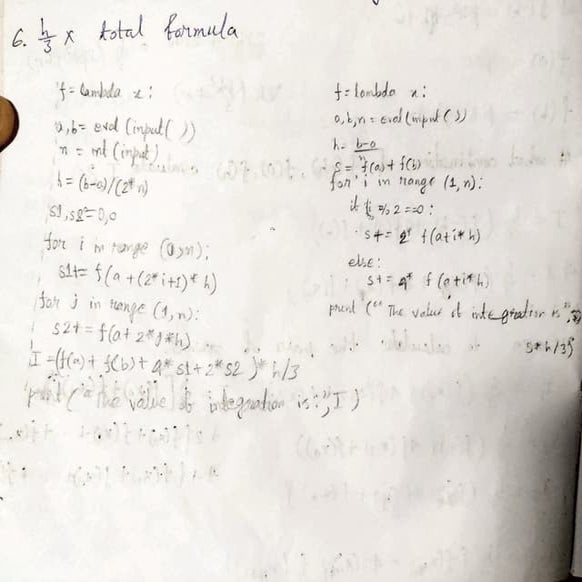 6. h/3 x total formula
f = lambda x :
a,b = eval (input( ))
n = int (input)
h = (b-a)/(2*n)
s1, s2 = 0,0
for i in range (0,n):
s1+= f(a+(2*i+1)*h)
for j in range (1,n):
s2+= f(a+2*j*h)
I =(f(a)+ f(b)+ 4* s1+2*s2 )* h/3
print ("The value of integration is:", I )
f = lambda x :
a,b,n = eval (input( ))
h = b-a/n
s = f(a) + f(b)
for i in range (1,n):
if i % 2 ==0 :
s+= 2* f(a+i*h)
else :
s+= 4* f(a+i*h)
print ("The value of integration is",
s*h/3)